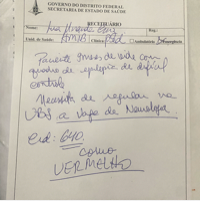 GOVERNO DO DISTRITO FEDERAL
SECRETARIA DE ESTADO DE SAÚDE
RECEITUÁRIO
Nome:
Reg.:
Unid. de Saúde: HMIB Clínica: Ambulatório Emergência
Paciente 9 meses de vida com
quadro de epilepsia de difícil
controle
Necessita de regular na
UBS a vaga de Neurologia
Cid: G40
como
VERMELHO